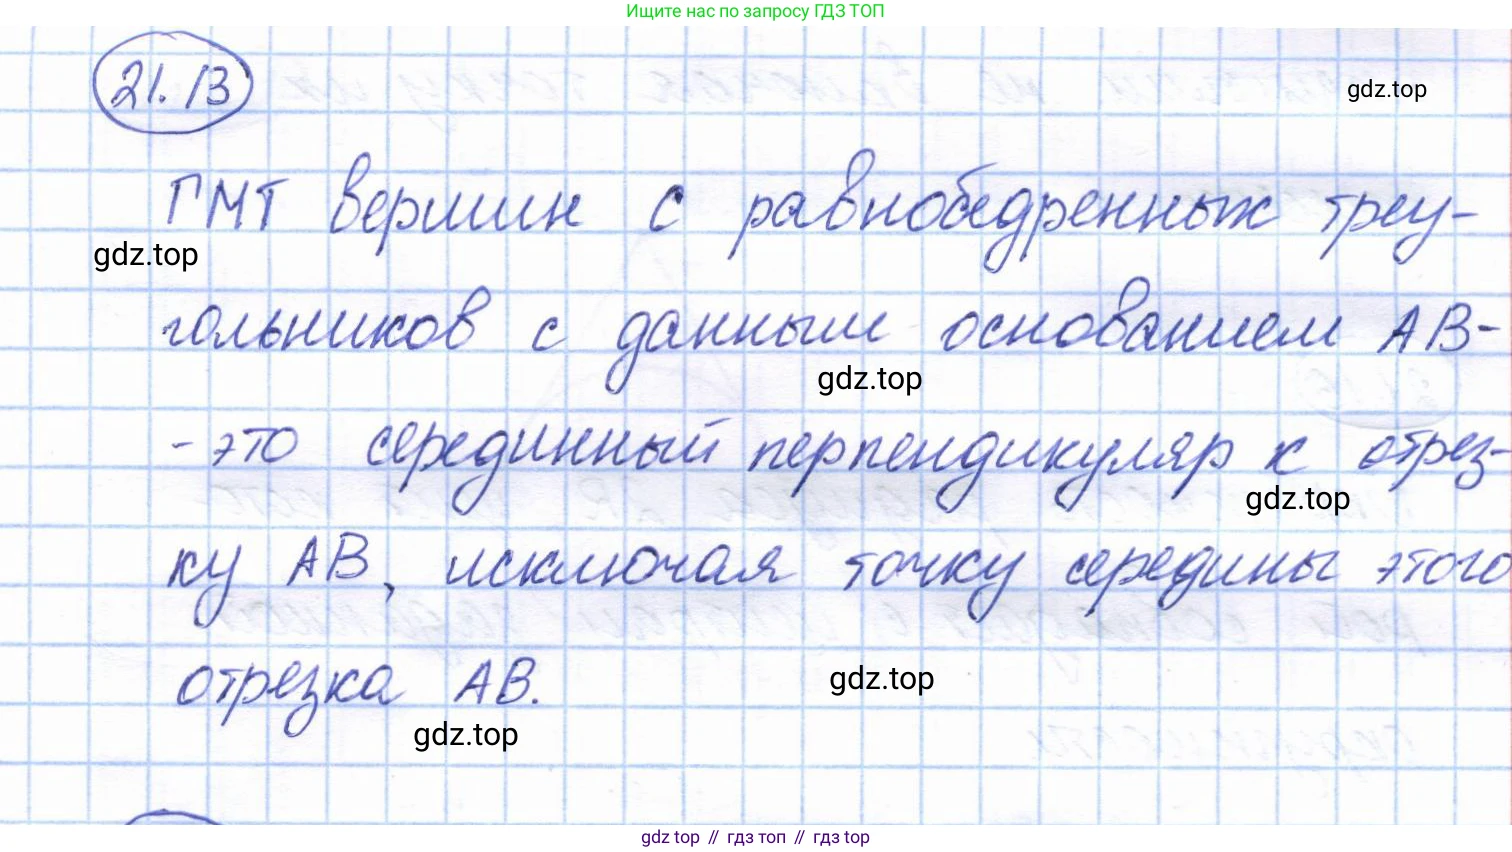 Ищите нас по запросу ГДЗ ТОП
21.13
gdz.top
ГМТ вершин с равнобедренных треу-
gdz.top
гольников с данным основанием АВ-
gdz.top
- это серединный перпендикуляр к отрез-
gdz.top
ку АВ, исключая точку середины этого
отрезка АВ.
gdz.top
gdz.top
gdz top // гдз топ // гдз top